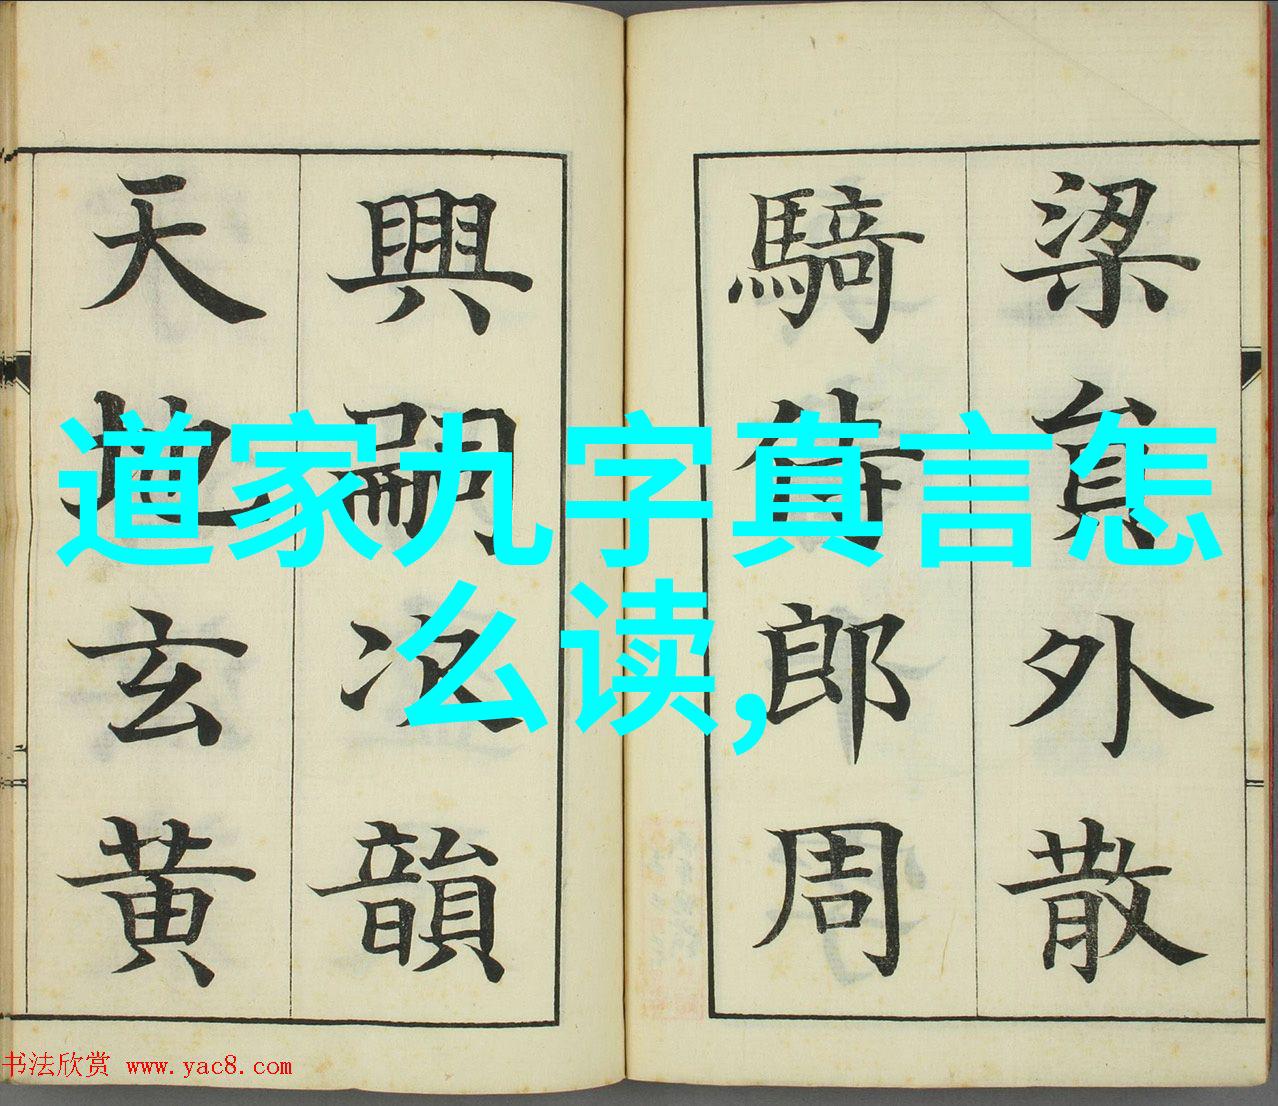 道家九字真言怎
么读,
梁員外散
騎侍郎周
興嗣次韻
天地玄黄
书法欣赏 www.yac8.com